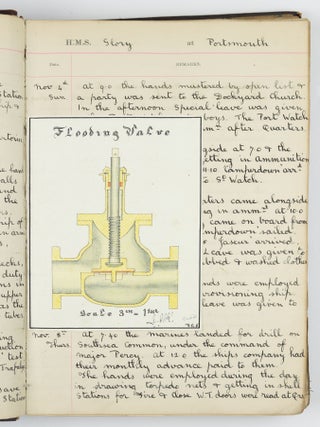 H.M.S. Glory at Portsmouth
Date. REMARKS.
Nov 4th at 9.0 the hands mustered by open list &
Sun a party was sent to the Dockyard Church
In the afternoon Special leave was given
boys. The Port Watch
after Quarters.
Flooding Valve
gside at 7.0 & the
etting in ammunition
Camperdown arrd
St Watch.
ters came alongside
ing in ammtn at 10.0
came on board from
mperdown sailed
arrived.
Leave was given to
bbed & washed clothes
nds were employed
rovisioning ship
leave was given to
Scale 3ins = 1 foot
Nov. 8th at 7.40 the marines landed for drill on
Thurs Southsea Common, under the command of
Major Percy. at 12.0 the ships company had
their monthly advance paid to them.
The hands were employed during the day
in drawing torpedo nets & getting in shell
Stations for Fire & close W.T. doors were read at Qrs